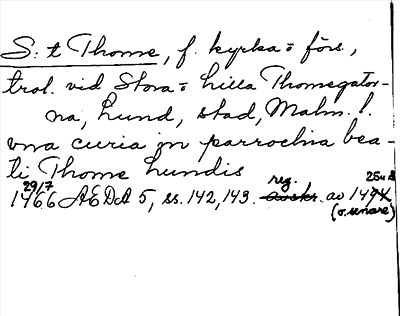 S:t Thome, f. kyrka= förs.,
trol. vid Stora= Lilla Thomegator-
na, Lund, stad, Malm. l.
vna curia jn parrochia bea-
ti Thome Lundis
29/7 reg. 25 u
1466 ÆDA 5, ss. 142, 143. avskr. av 1494
(o. senare)